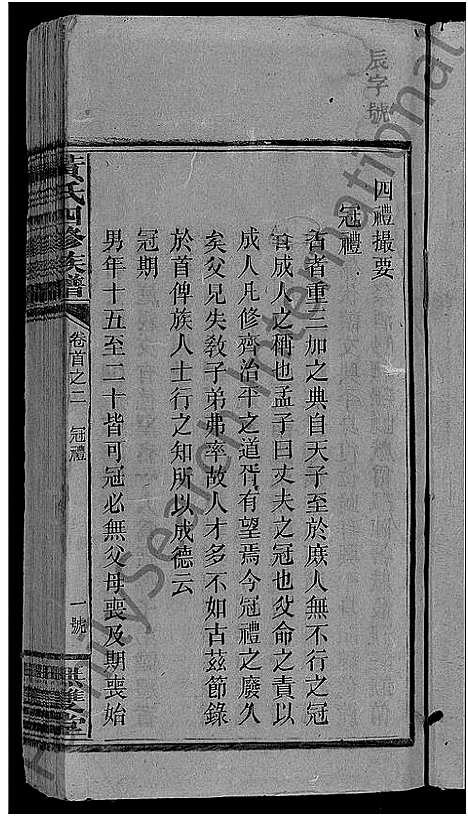 辰字號
四禮撮要
冠禮
古者重三加之典自天子至於庶人無不行之冠
者成人之稱也孟子曰丈夫之冠也父命之責以
成人凡修齊治平之道胥有望焉今冠禮之廢久
矣父兄失敎子弟弗率故人才多不如古茲節錄
於首俾族人士行之知所以成德云
冠期
男年十五至二十皆可冠必無父母喪及期喪始
黃氏四修族譜
卷首之二 冠禮
一號
雙堂